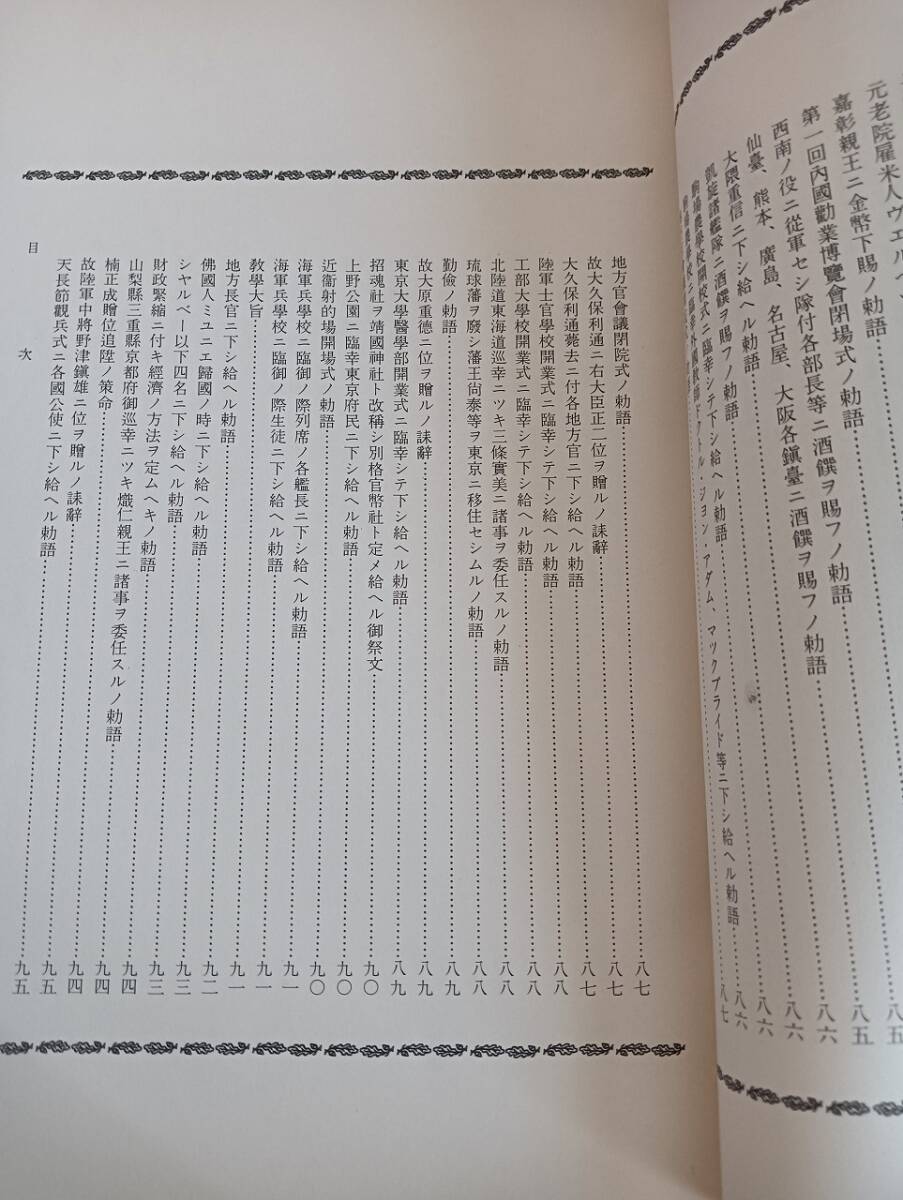 元老院雇米人ヴェルベッ
八五
嘉彰親王ニ金幣下賜ノ勅語……八五
第一回內國勸業博覽會閉場式ノ勅語……八六
西南ノ役ニ從軍セシ隊付各部長等ニ酒饌ヲ賜フノ勅語……八六
仙臺、熊本、廣島、名古屋、大阪各鎭臺ニ酒饌ヲ賜フノ勅語……八六
大隈重信ニ下シ給ヘル勅語……八六
凱旋諸艦隊ニ酒饌ヲ賜フノ勅語……八六
駒場農學校開校式ニ臨幸シテ下シ給ヘル勅語
駒場農學校ニ臨幸外國敎師ドクトル・ジョン・アダム、マックブライド等ニ下シ給ヘル勅語……八七
地方官會議閉院式ノ勅語……八七
故大久保利通ニ右大臣正二位ヲ贈ルノ誄辭……八七
大久保利通薨去ニ付各地方官ニ下シ給ヘル勅語……八七
陸軍士官學校開業式ニ臨幸シテ下シ給ヘル勅語……八八
工部大學校開業式ニ臨幸シテ下シ給ヘル勅語……八八
北陸道東海道巡幸ニツキ三條實美ニ諸事ヲ委任スルノ勅語……八八
琉球藩ヲ廢シ藩王尙泰等ヲ東京ニ移住セシムルノ勅語……八八
勤儉ノ勅語……八九
故大原重德ニ位ヲ贈ルノ誄辭……八九
東京大學醫學部開業式ニ臨幸シテ下シ給ヘル勅語……八九
招魂社ヲ靖國神社ト改稱シ別格官幣社ト定メ給ヘル御祭文……九〇
上野公園ニ臨幸東京府民ニ下シ給ヘル勅語……九〇
近衞射的場開場式ノ勅語……九〇
海軍兵學校ニ臨御ノ際列席ノ各艦長ニ下シ給ヘル勅語……九一
海軍兵學校ニ臨御ノ際生徒ニ下シ給ヘル勅語……九一
敎學大旨……九一
地方長官ニ下シ給ヘル勅語……九一
佛國人ミユニエ歸國ノ時ニ下シ給ヘル勅語……九二
シヤルベー以下四名ニ下シ給ヘル勅語……九三
財政緊縮ニ付キ經濟ノ方法ヲ定ムヘキノ勅語……九三
山梨縣三重縣京都府御巡幸ニツキ熾仁親王ニ諸事ヲ委任スルノ勅語……九四
楠正成贈位追陞ノ策命……九四
故陸軍中將野津鎭雄ニ位ヲ贈ルノ誄辭……九四
天長節觀兵式ニ各國公使ニ下シ給ヘル勅語……九五
九五
目次